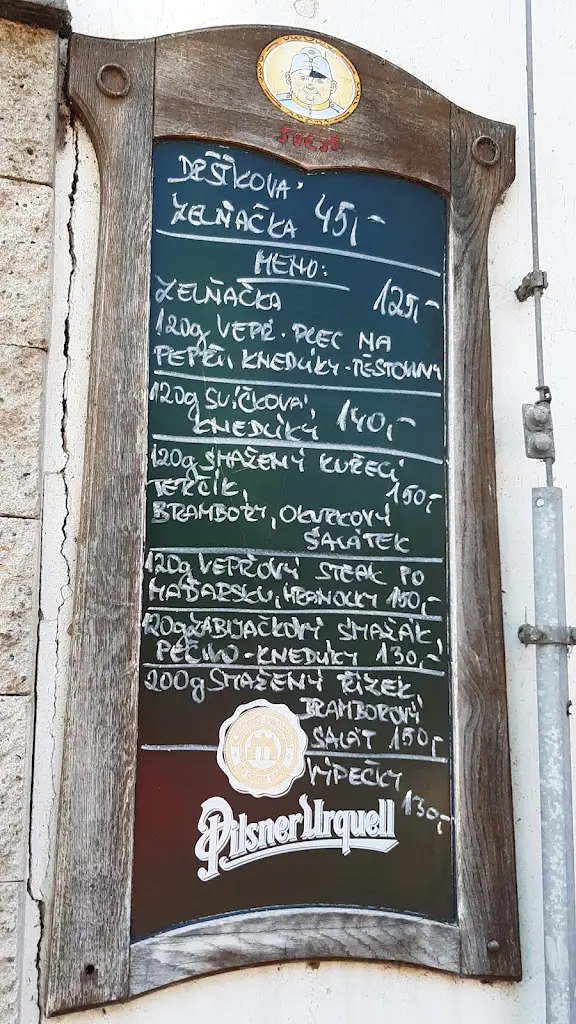 DRŠŤKOVÁ
ZELŇAČKA 45,-
MENU:
ZELŇAČKA 125,-
120g VEPŘ. PLEC NA
PEPŘI, KNEDLÍKY - TĚSTOVINY
120g SVÍČKOVÁ,
KNEDLÍKY 140,-
120g SMAŽENÝ KUŘECÍ
TERČÍK, 150,-
BRAMBORY, OKURKOVÝ
SALÁTEK
120g VEPŘOVÝ STEAK PO
MAĎARSKU, HRANOLKY 150,-
120g ZABIJAČKOVÝ SMAŽÁK,
PEČIVO - KNEDLÍKY 130,-
200g SMAŽENÝ ŘÍZEK,
BRAMBOROVÝ
SALÁT 150,-
VÝPEČKY
130,-
Pilsner Urquell